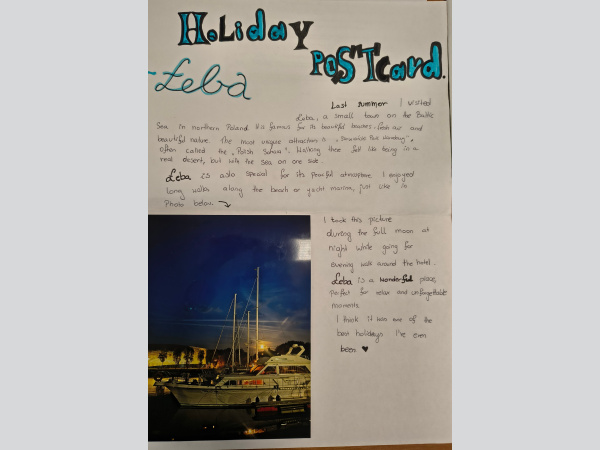 HOLiday
POSTcard.
-Łeba
Last summer I visited
Łeba, a small town on the Baltic
Sea in northern Poland. It's famous for its beautiful beaches, fresh air and
beautiful nature. The most unique attraction is
often called the "Polish Sahara". Walking there felt like being in a
real desert, but with the sea on one side.
Łeba is also special for its peaceful atmosphere. I enjoyed
long walks along the beach or yacht marina, just like in
Photo below.
I took this picture
during the full moon at
night while going for
evening walk around the hotel.
Łeba is a wonderful place,
perfect for relax and unforgettable
moments.
I think it was one of the
best holidays I've ever
been ♥